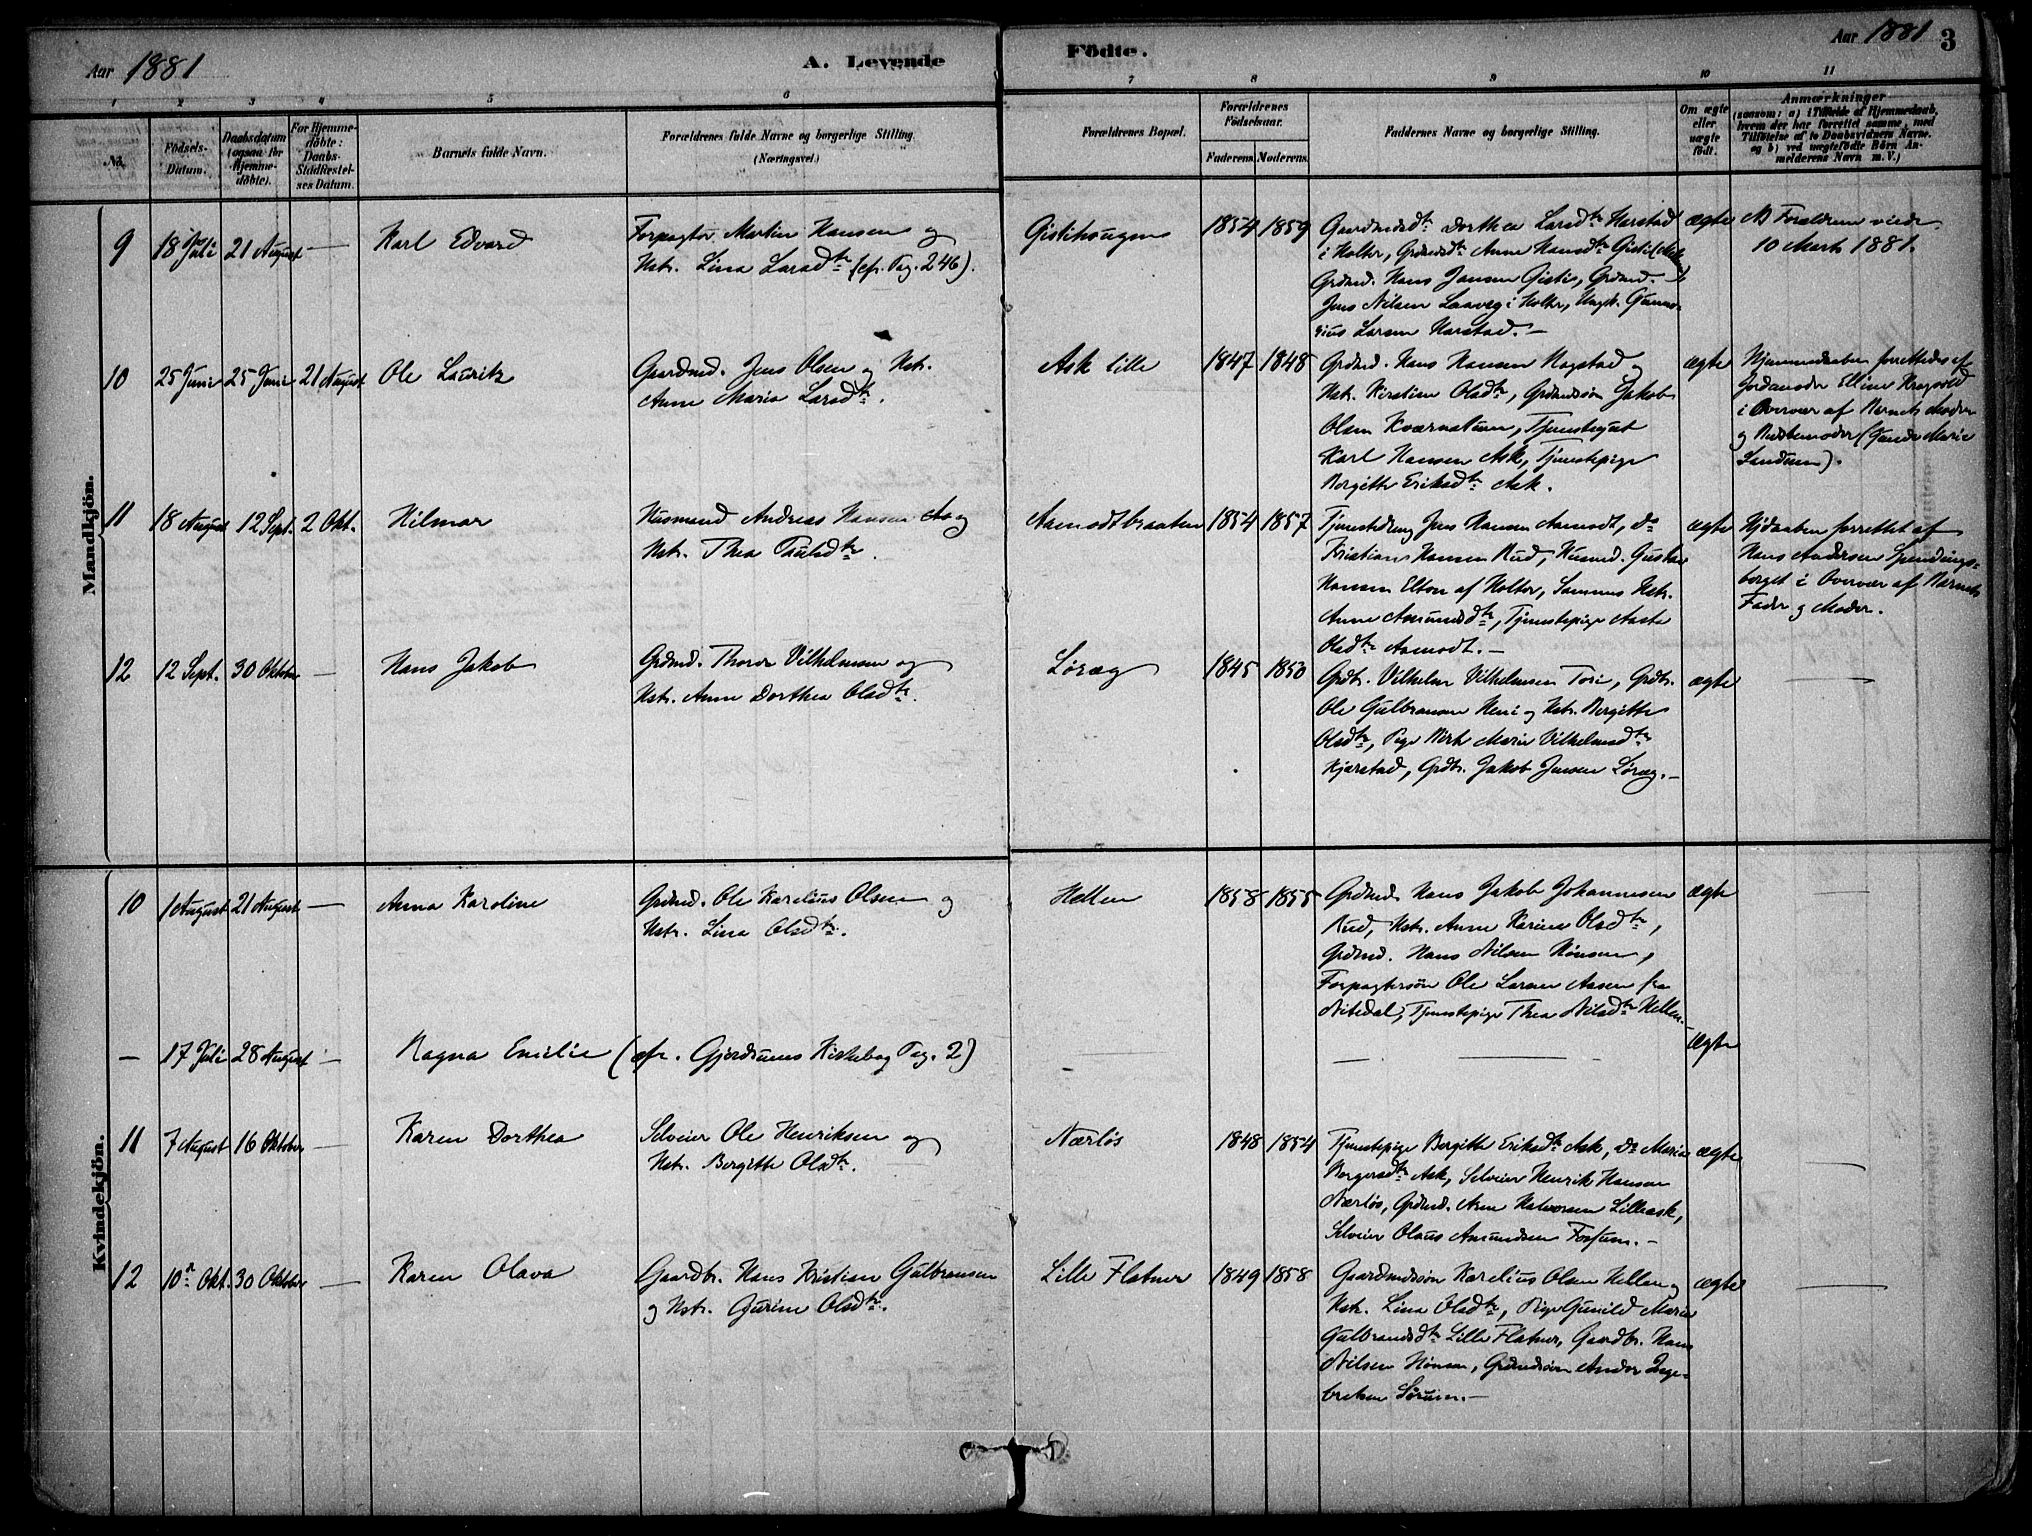 Aar 1881
A. Levende
Födte.
Aar 1881
3
1 2 3 4 5 6 7 8 9 10 11
No.
Födsels-Datum.
Daabsdatum (ogsaa for Hjemmedöbte).
For Hjemmedöbte: Daabs-Stadfestelses Datum.
Barnets fulde Navn.
Forældrenes fulde Navne og borgerlige Stilling.
(Næringsvei.)
Forældrenes Bopæl.
Forældrenes Födselsaar.
Faderens.
Moderens.
Faddernes Navne og borgerlige Stilling.
Om ægte eller uægte födt.
Anmærkninger
(saasom: a) i Tilfælde af Hjemmedaab, hvem der har forrettet samme, med Tilföielse af to Daabsvidners Navne, og b) ved uægtefödte Börn Anmelderens Navn m. V.)
Mandkjön.
9
18 Juli
21 August
—
Karl Edvard
Forpagter Martin Hansen og
Hstr. Lina Larsdtr (cfr. Pag. 246).
Gistihaugen
1854
1859
Gaardmdsdtr Dorthea Larsdtr Harstad
i Holter, Grdmdsdtr Anne Hansdtr Gisti
Grdmd. Hans Jansen Gisti, Grdmd.
Jens Nilsen Laaveg i Holter, Ungk.
Larsen Harstad. —
ægte
NB Forældrene viede
10 Marts 1881.
10
25 Juni
25 Juni
21 August
Ole Lauritz
Gaardmd. Jens Olsen og Hstr.
Anne Maria Larsdtr.
Ask lille
1847
1848
Grdmd. Hans Hansen Hogstad og
Hstr. Kirstine Olsdtr, Grdmdssøn Jakob
Olsen Kværnatuen, Tjenestegut
Karl Hansen Ask, Tjenestepige
Bergitte Eriksdtr Ask.
ægte
Hjemmedaaben forrettedes af
Jordemoder Elline Kragvold
i Overvær af Barnets Moder
og Bedstemoder (Gunda Marie
Sandum).
11
18 August
12 Sept.
2 Okt.
Hilmar
Husmand Andreas Hansen og
Hstr. Thea Paulsdtr.
Aamodtbraaten
1854
1857
Tjenestedreng Jens Hansen Aamodt, Do
Kristian Hansen Rud, Husmd. Gustav
Hansen Elton af Holter, Sammes Hstr.
Anne Amundsdtr, Tjenestepige Aaste
Olsdtr Aamodt. —
ægte
Hjdaaben forrettet af
Hans Andersen Spendings-
borget i Overvær af Barnets
Fader og Moder.
12
12 Sept.
30 Oktober
—
Hans Jakob
Grdmd. Thorer Vilhelmsen og
Hstr. Anne Dorthea Olsdtr.
Løræg
1845
1850
Grdbr. Vilhelm Vilhelmsen Tori, Grdbr.
Ole Gulbransen Heni og Hstr. Bergitte
Olsdtr, Pige Berte Marie Vilhelmsdtr
Kjærstad, Grdbr. Jakob Jensen Løræg. —
ægte
—
Kvindekjön.
10
1 August
21 August
—
Anna Karoline
Grdmd. Ole Karelius Olsen og
Hstr. Lina Olsdtr.
Hellen
1858
1855
Grdmd. Hans Jakob Johannesen
Rud, Hstr. Anne Karine Olsdtr,
Grdmd. Hans Nilsen Hønsen,
Forpagtersøn Ole Larsen Aasen fra
Nitedal, Tjenestepige Thea Nilsdtr Hellen. —
ægte
—
—
17 Juli
28 August
—
Ragna Emilie (cfr. Gjerdrums Kirkebog Pag. 2)
— —
ægte
11
7 August
16 Oktober
—
Karen Dorthea
Selveier Ole Henriksen og
Hstr. Bergitte Olsdtr.
Nærløs
1848
1854
Tjenestepige Bergitte Eriksdtr Ask, Do Maria
Borgersdtr Ask, Selveier Henrik Hansen
Nærløs, Grdmd. Arne Halvorsen Lilleask,
Selveier Olaus Amundsen Fossum. —
ægte
—
12
10 Okt.
30 Oktober
—
Karen Olava
Gaardbr. Hans Kristian Gulbransen
og Hstr. Gurine Olsdtr.
Lille Flatner
1849
1858
Gaardmdssøn Karelius Olsen Hellen og
Hstr. Lina Olsdtr, Pige Gunild Marie
Gulbrandsdtr Lille Flatner, Gaardbr. Hans
Nilsen Hønsen, Grdmdssøn Andor Inge-
bretsen Sørum. —
ægte
—